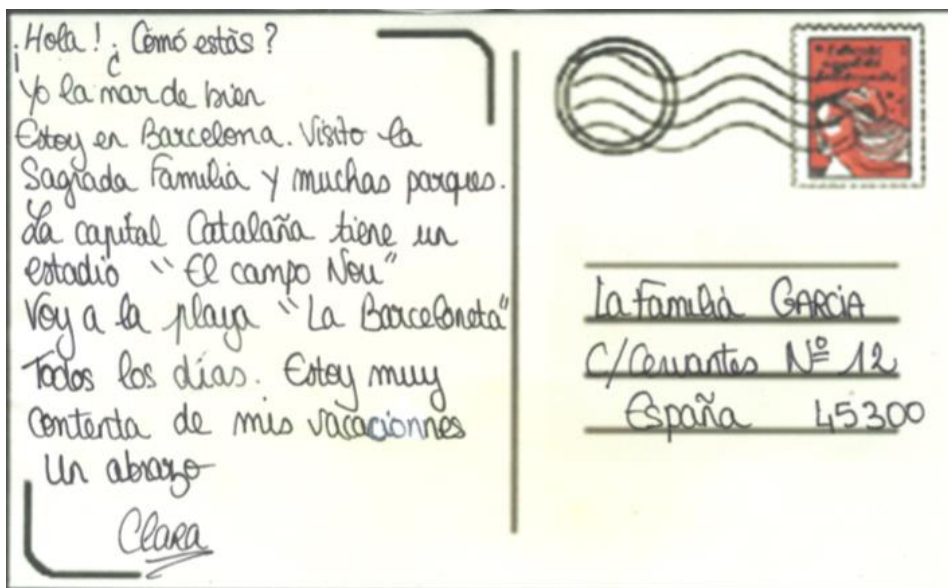 ¡Hola! ¿Cómó estás?
Yo la mar de bien
Estoy en Barcelona. Visito la
Sagrada Familia y muchas parques.
La capital Catalaña tiene un
estadio "El campo Nou"
Voy a la playa "La Barceloneta"
Todos los días. Estoy muy
contenta de mis vacacionnes
Un abrazo
Clara
La Familia GARCIA
C/Cervantes Nº 12
España 45300